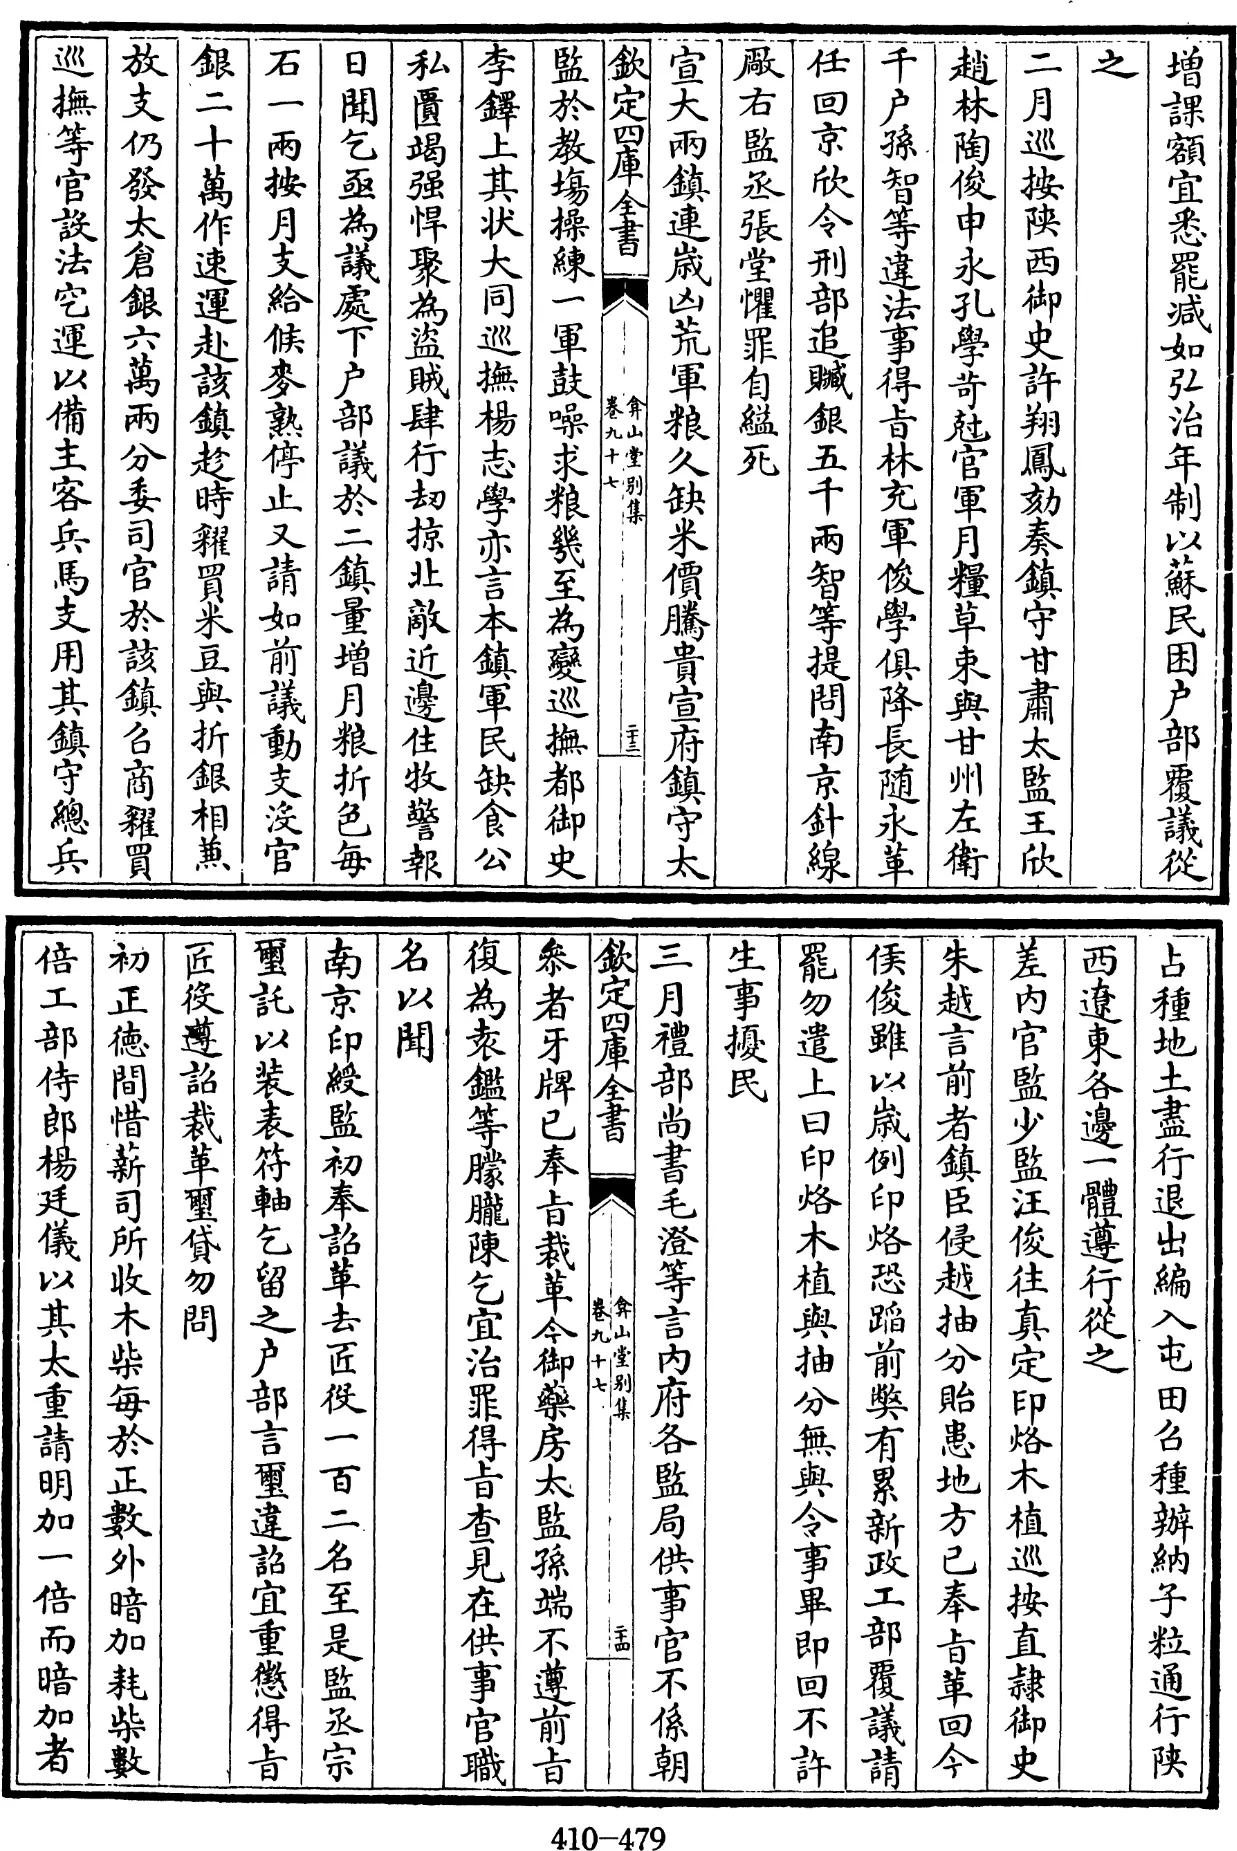 増課額宜悉罷減如弘治年制以蘇民困户部覆議從
之
二月巡按陜西御史許翔鳳劾奏鎮守甘肅太監王欣
趙林陶俊申永孔學苛尅官軍月糧草束與甘州左衛
千户孫智等違法事得㫖林充軍俊學俱降長随永革
任回京欣令刑部追贜銀五千兩智等提問南京針線
厰右監丞張堂懼罪自縊死
宣大兩鎮連嵗凶荒軍粮久缺米價騰貴宣府鎮守太
欽定四庫全書
弇山堂别集
卷九十七
二十三
監於教塲操練一軍鼓噪求粮幾至為變巡撫都御史
李鐸上其状大同巡撫楊志學亦言本鎮軍民缺食公
私匱竭强悍聚為盜賊肆行刼掠北敵近邊住牧警報
日聞乞亟為議處下户部議於二鎮量增月粮折色每
石一兩按月支給候麥熟停止又請如前議動支沒官
銀二十萬作速運赴該鎮趁時糴買米豆與折銀相兼
放支仍發太倉銀六萬兩分委司官於該鎮召商糴買
巡撫等官設法空運以備主客兵馬支用其鎮守總兵
占種地土盡行退出編入屯田召種辦納子粒通行陜
西遼東各邊一體遵行從之
差内官監少監汪俊往真定印烙木植巡按直隸御史
朱越言前者鎮臣侵越抽分貽患地方已奉㫖革回今
侯俊雖以嵗例印烙恐蹈前獘有累新政工部覆議請
罷勿遣上曰印烙木植與抽分無與令事畢即回不許
生事擾民
三月禮部尚書毛澄等言内府各監局供事官不係朝
欽定四庫全書
弇山堂别集
卷九十七
二十四
叅者牙牌已奉㫖裁革今御藥房太監孫端不遵前㫖
復為袁鑑等朦朧陳乞宜治罪得㫖查見在供事官職
名以聞
南京印綬監初奉詔革去匠役一百二名至是監丞宗
璽託以装表符軸乞留之户部言璽違詔宜重懲得㫖
匠役遵詔裁革璽貸勿問
初正徳間惜薪司所收木柴每於正數外暗加耗柴數
倍工部侍郎楊廷儀以其太重請明加一倍而暗加者
410-479